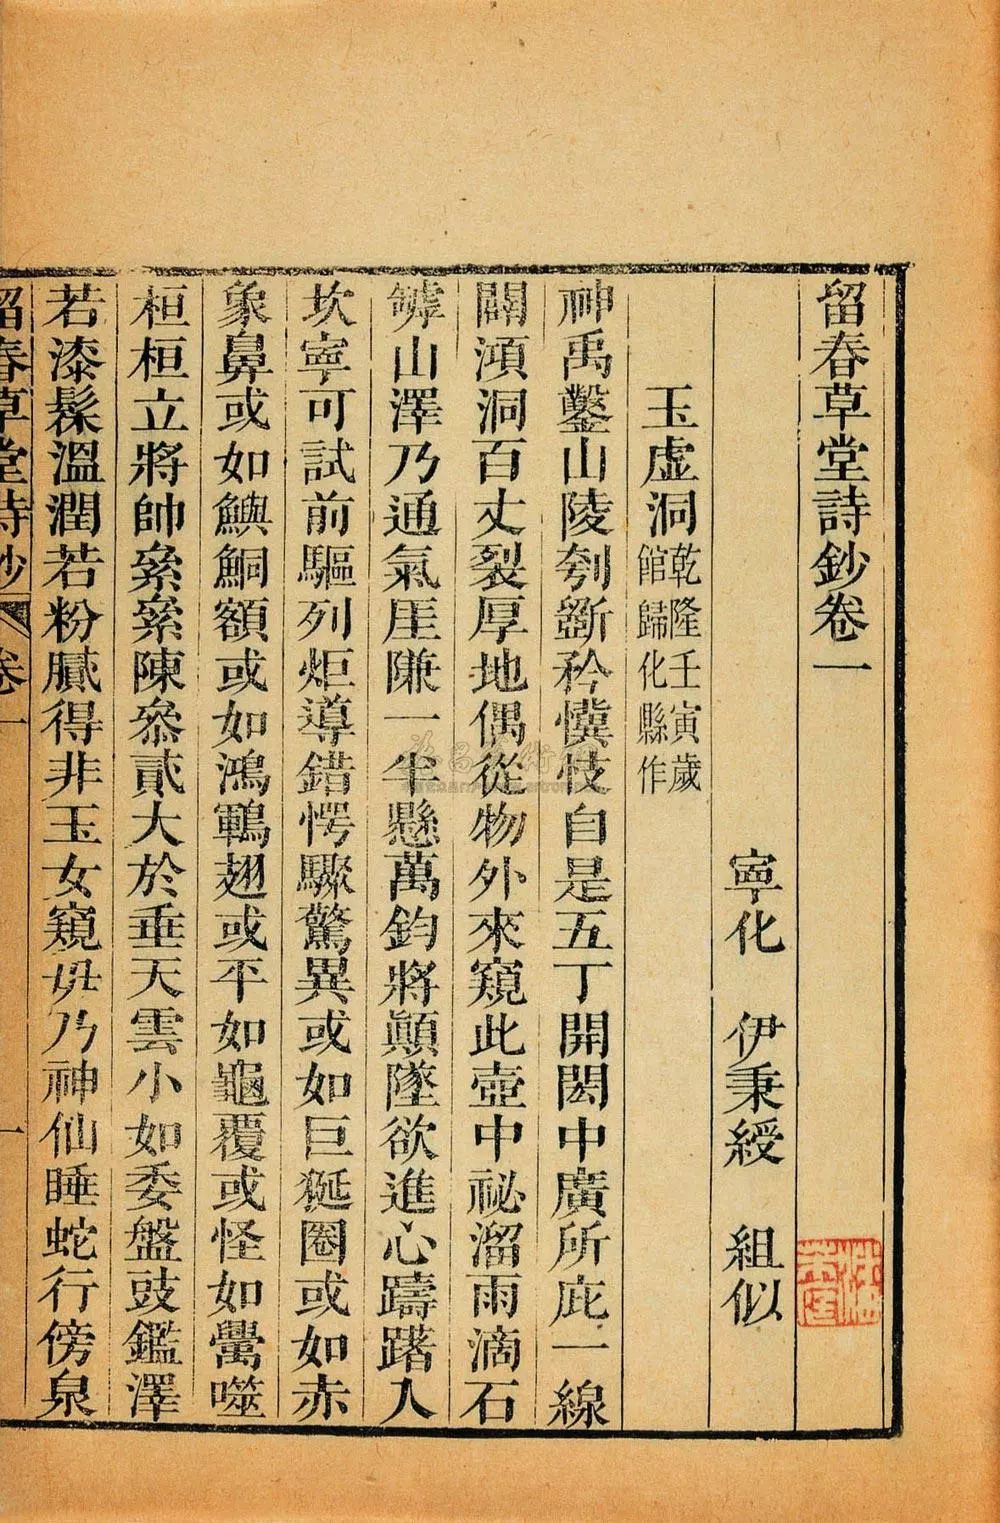 留春草堂詩鈔卷一
寧化 伊秉綬 組似
玉虛洞乾隆壬寅歲館歸化縣作
神禹鑿山陵刳斵矜懻忮自是五丁開閎中廣所庇一線
闢澒洞百丈裂厚地偶從物外來窺此壺中祕溜雨滴石
罅山澤乃通氣厓隒一半懸萬鈞將顚墜欲進心躊躇入
坎寧可試前驅列炬導錯愕驟驚異或如巨狿圈或如赤
象鼻或如鱮鮦額或如鴻鶤翅或平如龜覆或怪如齧噬
桓桓立將帥纍纍陳叅貳大於垂天雲小如委盤豉鑑澤
若漆髹溫潤若粉膩得非玉女窺毋乃神仙睡蛇行傍泉
留春草堂詩鈔 卷一 一